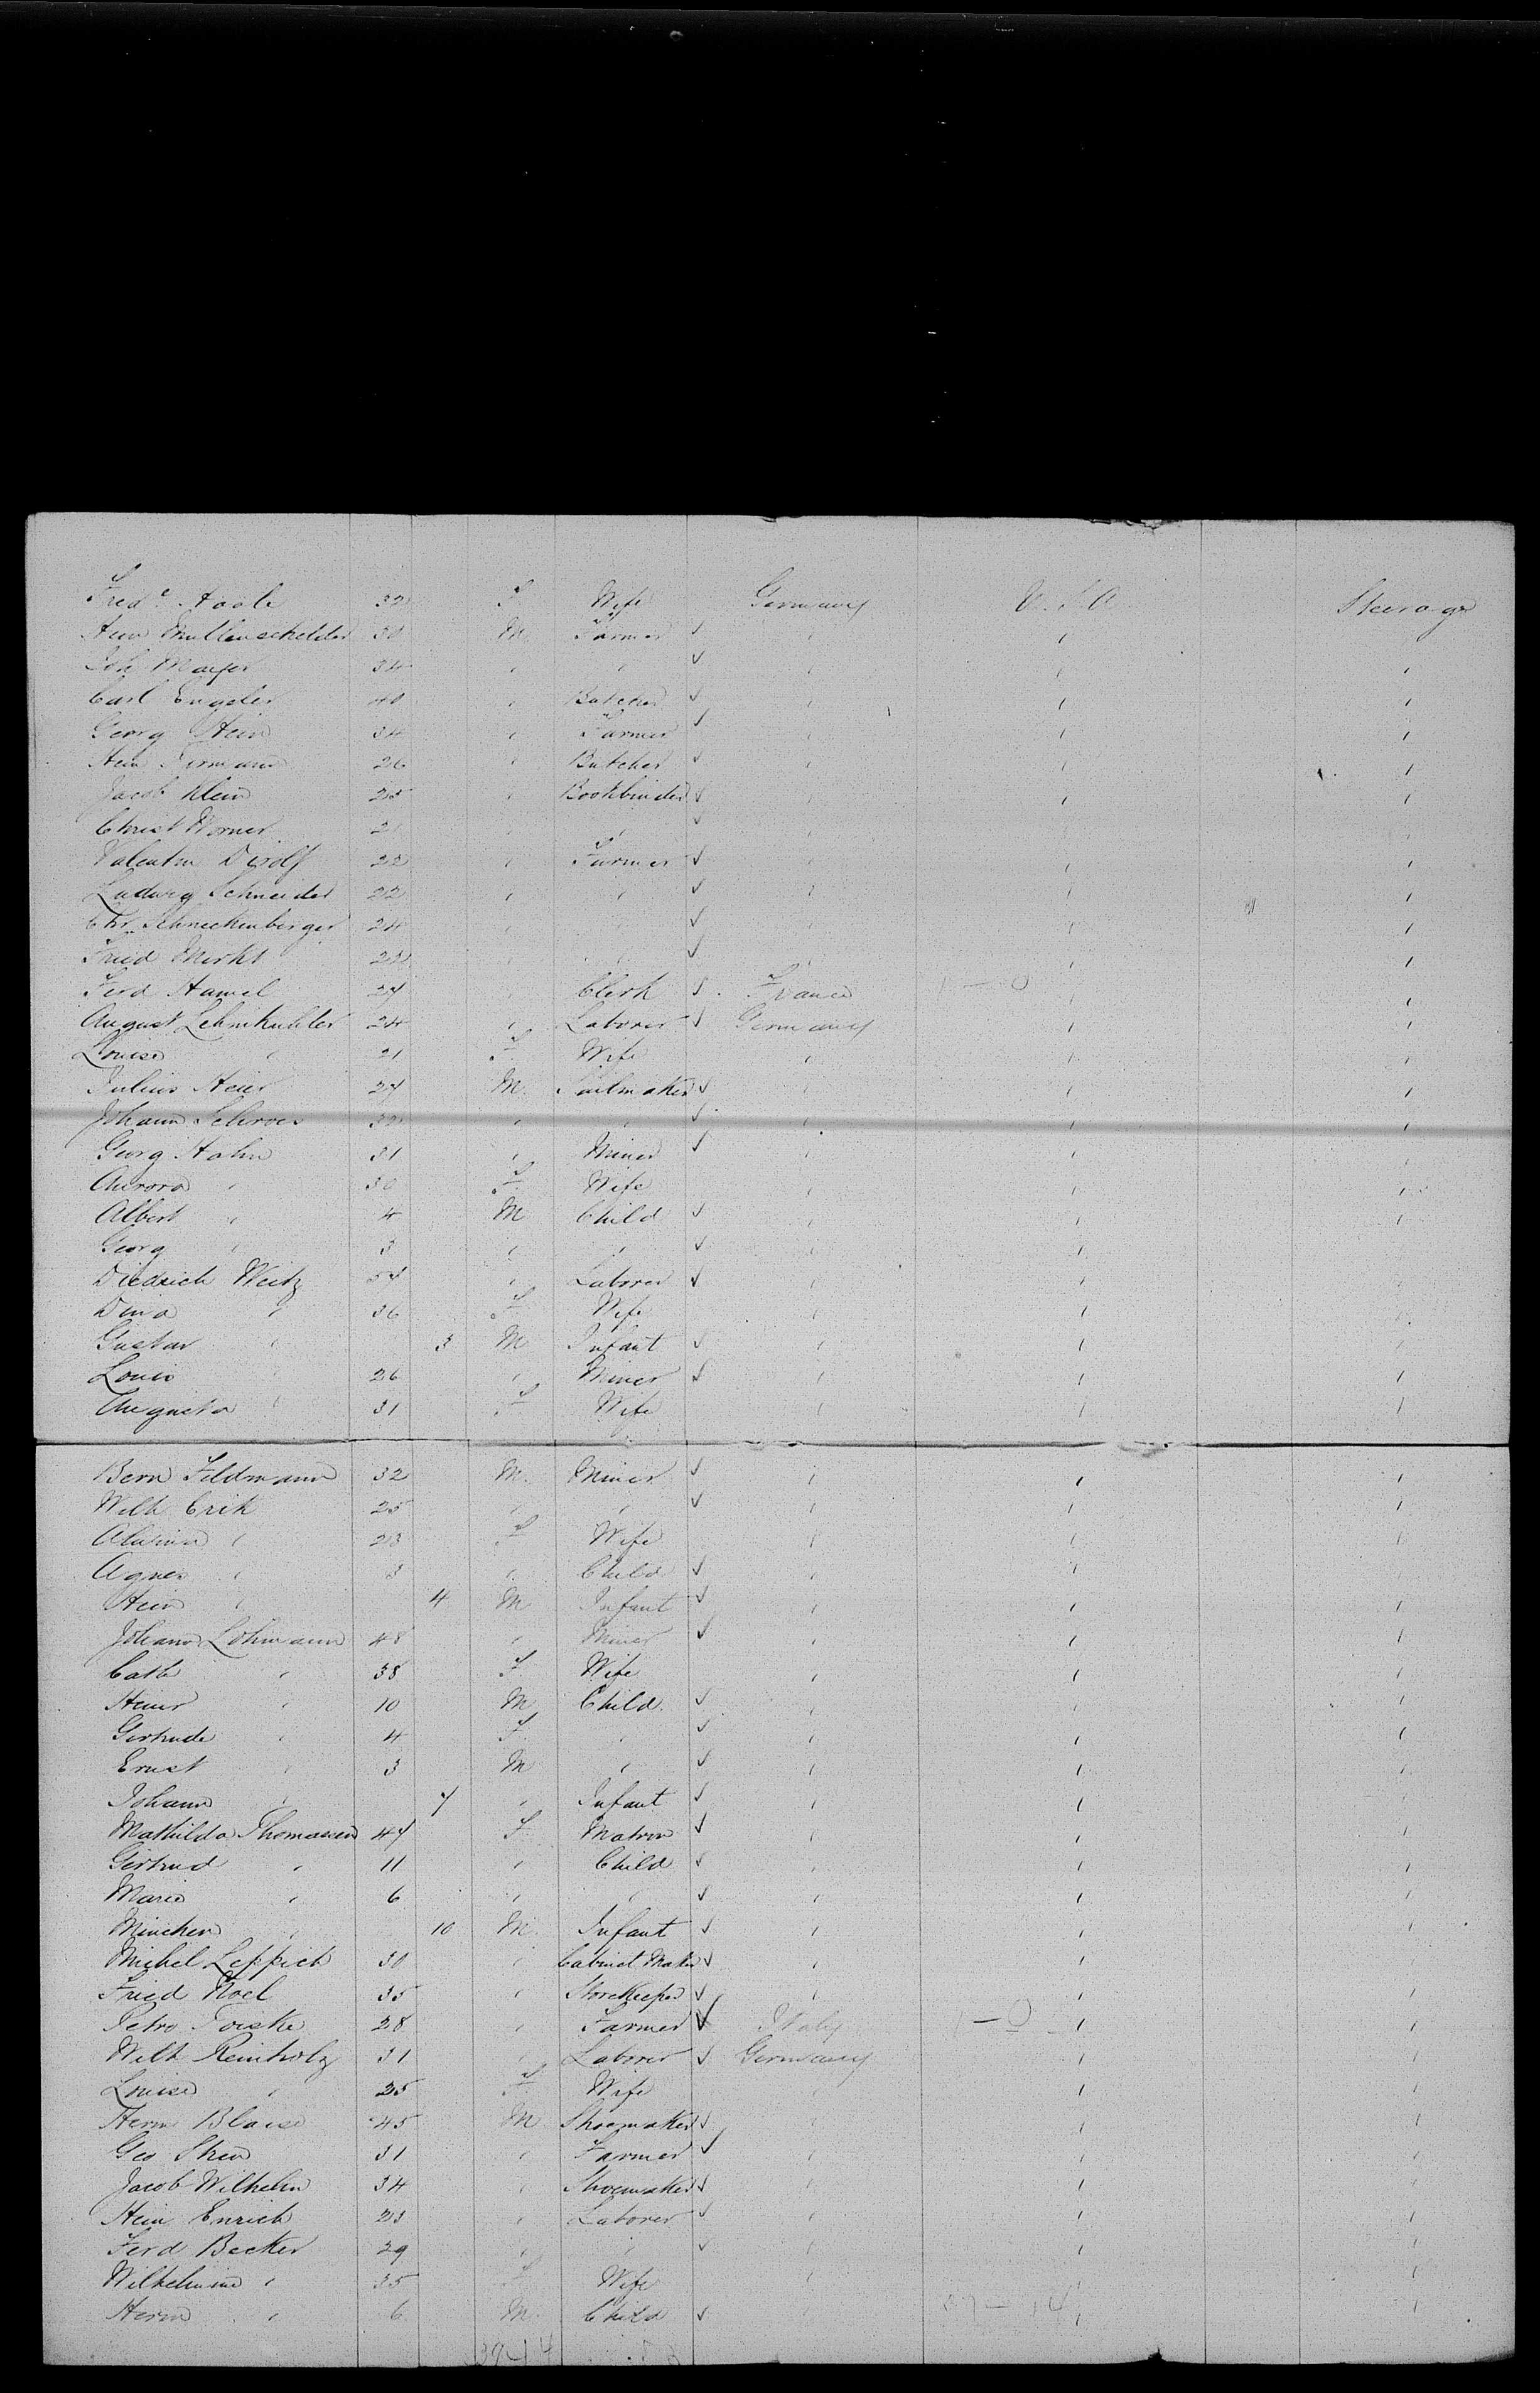 Fredc Hoole 32 F Wife Germany U.S.A. Steerage
Hein Mullenschelder 30 M Farmer √ " " "
Joh Mayer 34 " " √ " " "
Carl Engeler 40 " Butcher √ " " "
Georg Stein 34 " Farmer √ " " "
Hein 26 " Butcher √ " " "
Jacob Klein 25 " Bookbinder √ " " "
Christ Werner 21 " " √ " " "
Valentin 22 " Farmer √ " " "
Ludwig Schneider 22 " " √ " " "
Chr. Schneckenberger 24 " " √ " " "
Fried Merkt 23 " " √ " " "
Ferd Hamel 27 " Clerk √ France " "
August Lehmkuhler 24 " Laborer √ Germany " "
Louise " 21 F Wife " " "
Julius Heier 27 M. Sailmaker √ " " "
Johann Schroer 32 " " √ " " "
Georg Hahn 31 " Miner √ " " "
Aurora " 30 F. Wife " " "
Albert " 4 M Child √ " " "
Georg " 3 " " √ " " "
Diedrich Weitz 54 " Laborer √ " " "
Dina " 36 F. Wife " " "
Gustav " 3 M Infant √ " " "
Louis " 26 " Miner √ " " "
Augusta " 31 F Wife " " "
Bern Feldmann 32 M. Miner √ " " "
Wilh Erik 25 " " √ " " "
" 23 F Wife " " "
Agnes " 3 " Child √ " " "
Hein " 4 M Infant √ " " "
Johann Lohmann 48 " Miner √ " " "
Cath " 38 F. Wife " " "
Heinr " 10 M Child √ " " "
Gertrude " 4 F. " √ " " "
Ernst " 3 M " √ " " "
Johann " 7 " Infant √ " " "
Mathilda Thomasen 47 F. Matron √ " " "
Gertrud " 11 " Child √ " " "
Marie " 6 " " √ " " "
Minchen " 10 M. Infant √ " " "
Michel Leppich 30 " Cabinet Maker √ " " "
Fried Noel 35 " Storekeeper √ " " "
Petro Toiske 28 " Farmer √ Italy —0— " "
Wilh Reinholz 31 " Laborer √ Germany " "
Louise " 25 F. Wife " " "
Herm Blaise 45 M Shoemaker √ " " "
Geo Stein 31 " Farmer √ " " "
Jacob Wilhelm 34 " Shoemaker √ " " "
Hein Enrich 23 " Laborer √ " " "
Ferd Becker 29 " " √ " " "
Wilhelmine " 35 F Wife " " "
Herm " 6 M. Child √ " " "